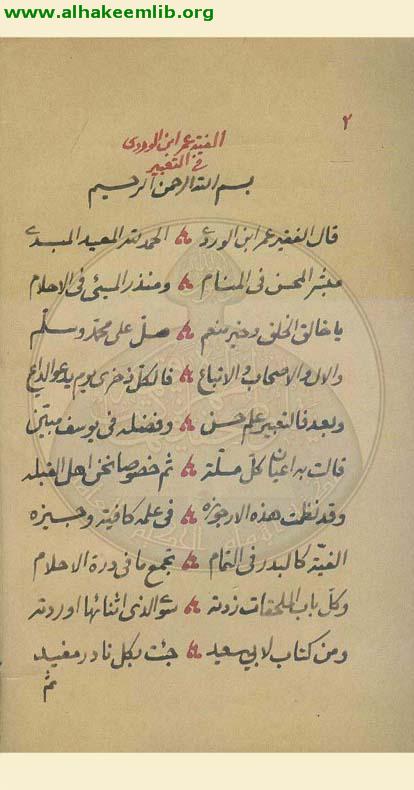 www.alhakeemlib.org
٢
الفية عمر ابن الوردى
فى التعبير
بسم الله الرحمن الرحيم
قال الفقير عمر ابن الوردى الحمد لله المعيد المبدى
مبشر المحسن فى المنام ومنذر المسيئ فى الاحلام
يا خالق الخلق وخير منعم صل على محمد وسلم
والال والاصحاب والاتباع فالكل ذخرى يوم يدعو الداع
وبعد فالتعبير علم حسن وفضله فى يوسف مبين
قالت به اعيان كل ملة ثم خصوصا نحن اهل القبله
وقد نظمت هذه الارجوزه فى علمه كافية وجيزه
الفية كالبدر فى التمام تجمع ما فى درة الاحلام
وكل باب الملحقات زدته سوالذى اثنائها اوردته
ومن كتاب لابى سعيد جئت بكل نادر مفيد
ثم